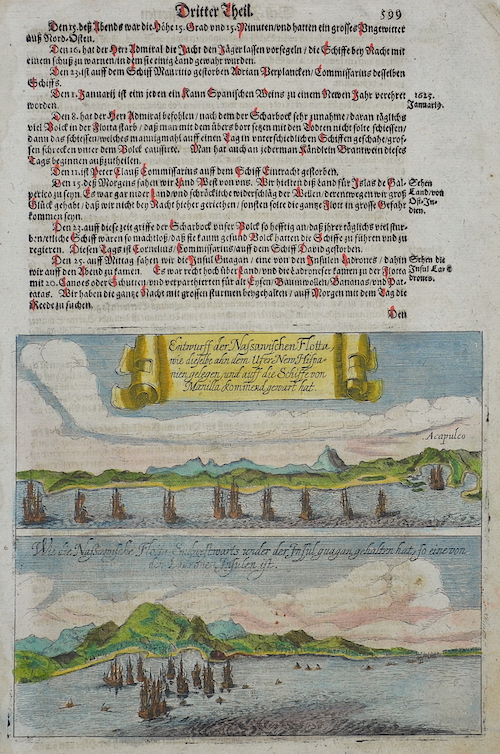 Dritter Theil. 599
Den 15. deß Abends war die Höhe 15. Grad und 15. Minuten/und hatten ein grosses Ungewitter
auß Nord-Osten.
Den 16. hat der Herr Admiral die Jacht den Jäger lassen vorsegeln / die Schiffe bey Nacht mit
einem schuß zu warnen/in dem sie einig Land gewahr wurden.
Den 23. ist auff dem Schiff Mauritio gestorben Adrian Verplancken/Commissarius desselben
Schiffs.
Den 1. Januarij ist eim jeden ein Kann Spanischen Weins zu einem Newen Jahr verehret
worden.
1625.
Januarij.
Den 8. hat der Herr Admiral befohlen / nach dem der Scharbock sehr zunahme / daran täglichs
viel Volck in der Flotta starb / daß man mit dem übers bort setzen mit den Todten nicht solte schiessen/
dann das schiessen/welches manigmahl auff einen Tag in unterschiedlichen Schiffen geschahe/gros-
sen schrecken unter dem Volck causirte. Man hat auch an jederman Kändlein Brantwein dieses
Tags beginnen außzutheilen.
Den 11. ist Peter Clauß Commissarius auff dem Schiff Eintracht gestorben.
Den 15. deß Morgens sahen wir Land West von uns. Wir hielten diß Land für Islas de Gal-
perico zu seyn. Es war gar nider Land und schröckliche widerschläg der Wellen/derentwegen wir groß
Glück gehabt / daß wir nicht bey Nacht hieher geriethen / sonsten solte die gantze Flott in grosse Gefahr
kommen seyn.
Sehen
Land/von
Ost-In-
dien.
Den 23. auff diese zeit griffe der Scharbock unser Volck so hefftig an/daß ihrer täglichs viel stur-
ben/etliche Schiff waren so machtloß/daß sie kaum gesund Volck hatten die Schiffe zu führen und zu
regieren. Diesen Tags ist Cornelius/Commissarius auß dem Schiff David gestorben.
Den 25. auff Mittag sahen wir die Insul Guagan / eine von den Insulen Ladrones / dahin
wir auff den Abend zu kamen. Es war recht hoch über Land/und die Ladronser kamen zu der Flotta
mit 20. Canoes oder Schuiten/und verpartierten für alt Eysen/Baumwollen/Bananas und Pa-
tatas. Wir haben die gantze Nacht mit grossen sturmen beygehalten / auff Morgen mit dem Tag die
Reede zu suchen.
Sehen die
Insul La-
drones.
Den
Entwurff der Nassawischen Flotta,
wie dieselbe ahn dem Ufer Nem Hispa-
nien gelegen, und auff die Schiffe von
Manilla kommend gewart hat.
Acapulco
Wie die Nassawische Flotta Sudwestwarts under der Insul guagan gehalten hat, so eine von
den Ladrones Insulen ist.